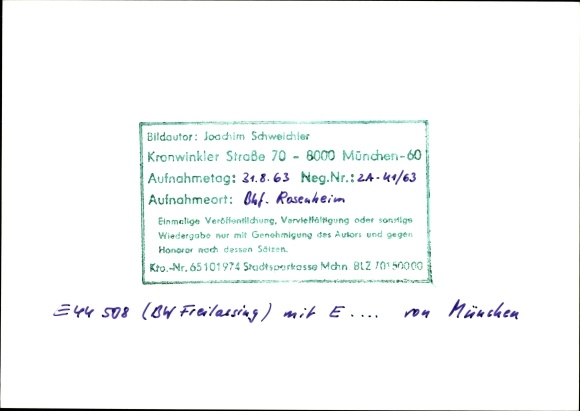 Bildautor: Joachim Schweichler
Kronwinkler Straße 70 - 8000 München-60
Aufnahmetag: 31.8.63 Neg.Nr.: 2A-41/63
Aufnahmeort: Bhf. Rosenheim
Einmalige Veröffentlichung, Vervielfältigung oder sonstige
Wiedergabe nur mit Genehmigung des Autors und gegen
Honorar nach dessen Sätzen.
Kto.-Nr. 65101974 Stadtsparkasse Mchn BLZ 70150000
E44 508 (BW Freilassing) mit E.... von München